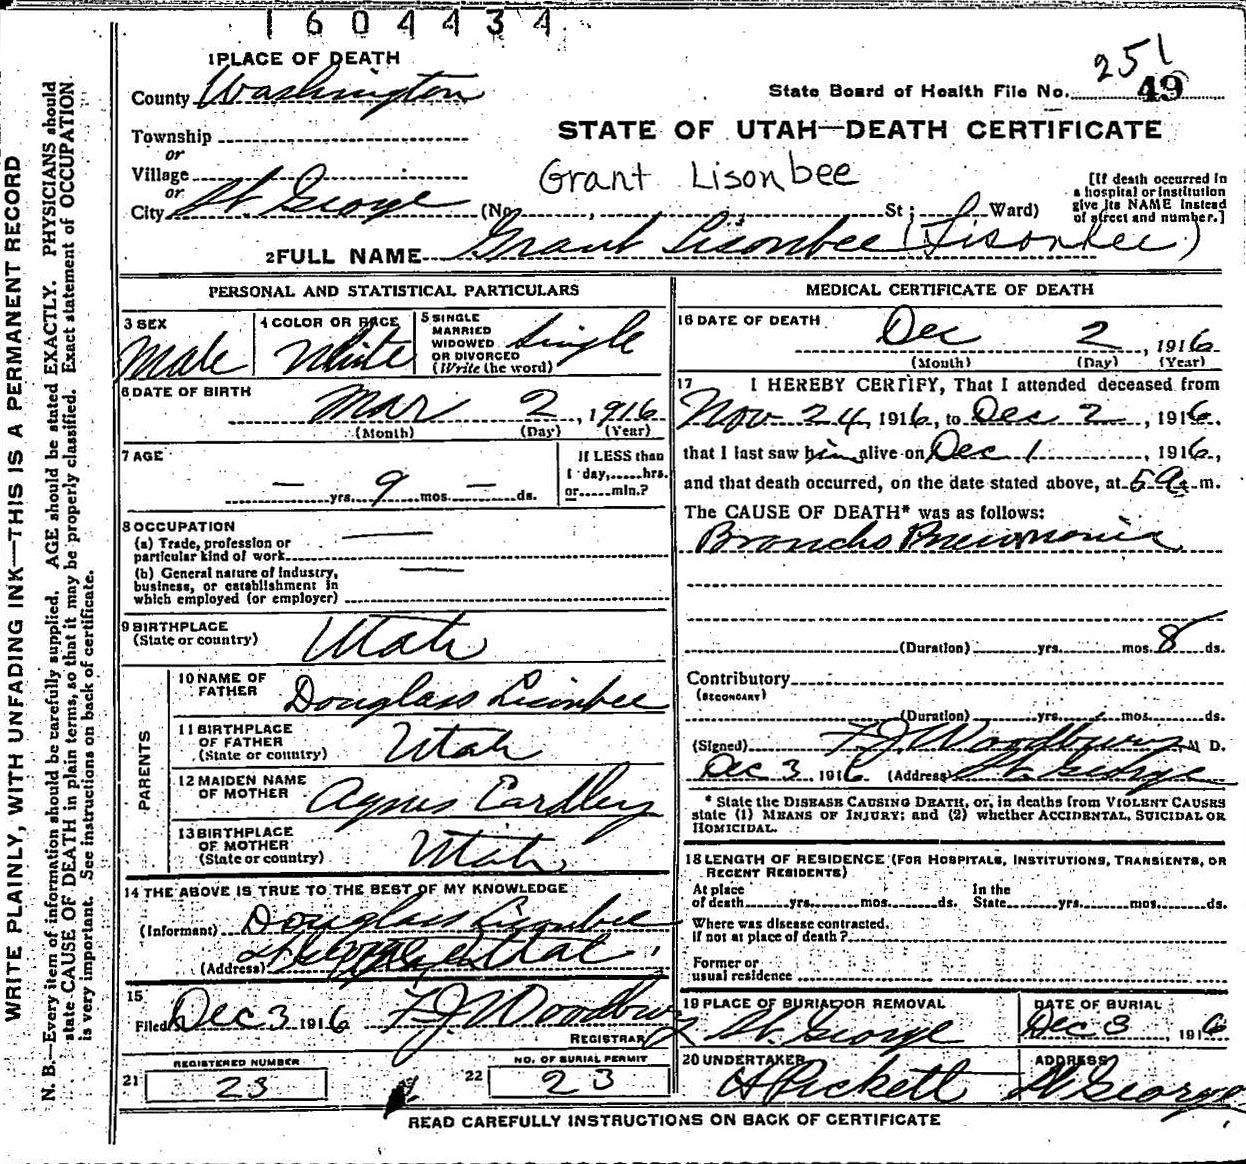 1604434
1 PLACE OF DEATH
County Washington
State Board of Health File No. 251 49
Township
or
STATE OF UTAH—DEATH CERTIFICATE
Village
or
Grant Lisonbee
City St George (No. , St; Ward)
[If death occurred in
a hospital or institution
give its NAME instead
of street and number.]
2 FULL NAME Grant Lisonbee (Lisonbee)
PERSONAL AND STATISTICAL PARTICULARS
3 SEX
Male
4 COLOR OR RACE
White
5 SINGLE
MARRIED
WIDOWED
OR DIVORCED
(Write the word)
Single
6 DATE OF BIRTH
Mar 2, 1916
(Month) (Day) (Year)
7 AGE
— yrs. 9 mos. — ds.
If LESS than
1 day,......hrs.
or......min.?
8 OCCUPATION
(a) Trade, profession or
particular kind of work —
(b) General nature of Industry,
business, or establishment in
which employed (or employer) —
9 BIRTHPLACE
(State or country) Utah
PARENTS
10 NAME OF
FATHER Douglass Lisonbee
11 BIRTHPLACE
OF FATHER
(State or country) Utah
12 MAIDEN NAME
OF MOTHER Agnes Eardley
13 BIRTHPLACE
OF MOTHER
(State or country) Utah
14 THE ABOVE IS TRUE TO THE BEST OF MY KNOWLEDGE
(Informant) Douglass Lisonbee
(Address) St George Utah
15
Filed Dec 3 1916 F J Woodbury
REGISTRAR
REGISTERED NUMBER
21 23
NO. OF BURIAL PERMIT
22 23
MEDICAL CERTIFICATE OF DEATH
16 DATE OF DEATH Dec 2, 1916
(Month) (Day) (Year)
17 I HEREBY CERTIFY, That I attended deceased from
Nov 24, 1916, to Dec 2, 1916,
that I last saw him alive on Dec 1, 1916,
and that death occurred, on the date stated above, at 5 a. m.
The CAUSE OF DEATH* was as follows:
Broncho Pneumonia
(Duration) yrs. mos. 8 ds.
Contributory
(SECONDARY)
(Duration) yrs. mos. ds.
(Signed) F. J. Woodbury M D.
Dec 3 1916 (Address) St. George
* State the DISEASE CAUSING DEATH, or, in deaths from VIOLENT CAUSES
state (1) MEANS OF INJURY; and (2) whether ACCIDENTAL, SUICIDAL OR
HOMICIDAL.
18 LENGTH OF RESIDENCE (FOR HOSPITALS, INSTITUTIONS, TRANSIENTS, OR
RECENT RESIDENTS)
At place
of death yrs. mos. ds.
In the
State yrs. mos. ds.
Where was disease contracted.
If not at place of death?
Former or
usual residence
19 PLACE OF BURIAL OR REMOVAL
St. George
DATE OF BURIAL
Dec 3, 1916
20 UNDERTAKER
A Pickett
ADDRESS
St George
READ CAREFULLY INSTRUCTIONS ON BACK OF CERTIFICATE
WRITE PLAINLY, WITH UNFADING INK—THIS IS A PERMANENT RECORD
N. B.—Every item of information should be carefully supplied. AGE should be stated EXACTLY. PHYSICIANS should
state CAUSE OF DEATH in plain terms, so that it may be properly classified. Exact statement of OCCUPATION
is very important. See instructions on back of certificate.